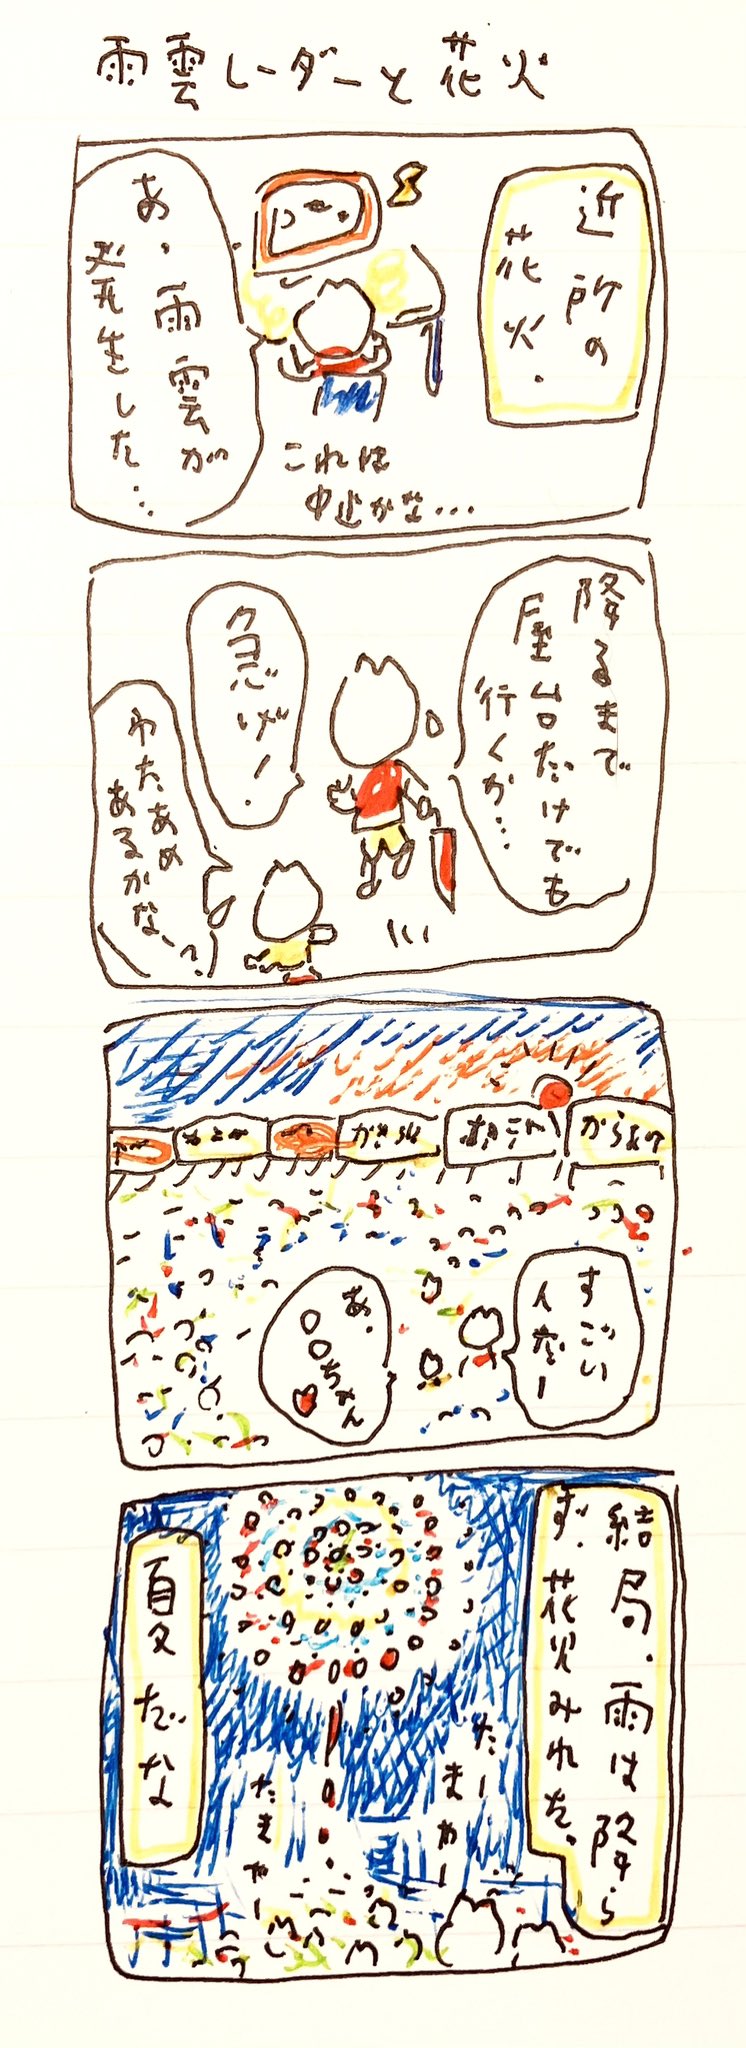 雨雲レーダーと花火
近所の
花火.
あ、雨雲が
発生した…
これは
中止かな…
降るまで
屋台だけでも
行くか…
急げ!
わたあめ
あるかな、?
からあげ
かき氷
すごい
人だー
あ、
〇〇ちゃん
結局、雨は降ら
ず、花火みれた、
たー
まやー
たまやー
夏だな